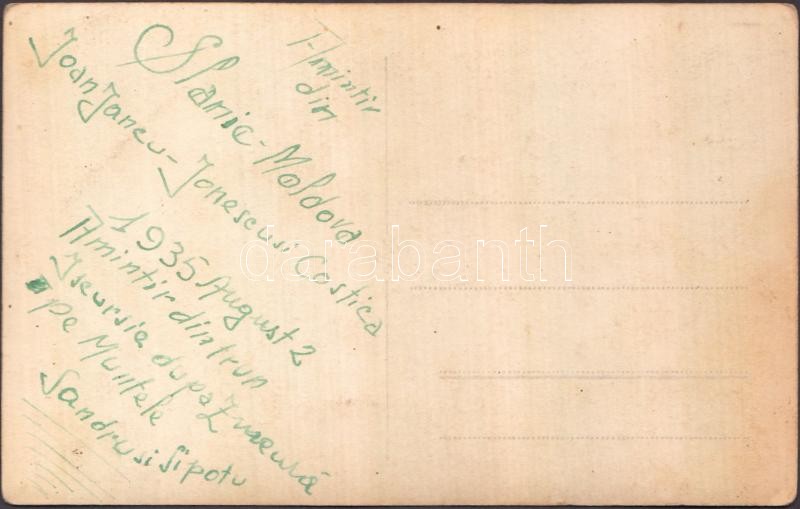 Amintir
din
Slanic-Moldova
Joan Jancu-Jonescu si Costica
1935 August 2
Amintir dintrun
Jscursia dupa Zmeură
pe Muntele
Sandru si Sipotu
darabanth